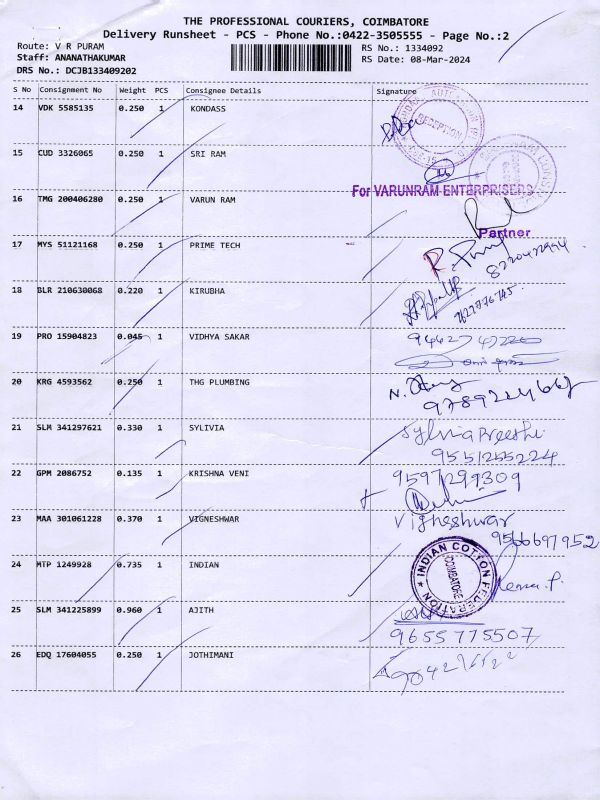 THE PROFESSIONAL COURIERS, COIMBATORE
Delivery Runsheet - PCS - Phone No.:0422-3505555 - Page No.:2
Route: V R PURAM
Staff: ANANATHAKUMAR
DRS No.: DCJB133409202
RS No.: 1334092
RS Date: 08-Mar-2024
S No Consignment No Weight PCS Consignee Details Signature
14 VDK 5585135 0.250 1 KONDASS
RECEPTION
15 CUD 3326065 0.250 1 SRI RAM
16 TMG 200406280 0.250 1 VARUN RAM
For VARUNRAM ENTERPRISERS
Partner
17 MYS 51121168 0.250 1 PRIME TECH
18 BLR 210630068 0.220 1 KIRUBHA
19 PRO 15904823 0.045 1 VIDHYA SAKAR
20 KRG 4593562 0.250 1 THG PLUMBING
21 SLM 341297621 0.330 1 SYLIVIA
Sylvia Preethi
9551255224
22 GPM 2086752 0.135 1 KRISHNA VENI
9597299309
23 MAA 301061228 0.370 1 VIGNESHWAR
Vigneshwar
9566697952
24 MTP 1249928 0.735 1 INDIAN
INDIAN COTTON FEDERATION
COIMBATORE
25 SLM 341225899 0.960 1 AJITH
9655775507
26 EDQ 17604055 0.250 1 JOTHIMANI